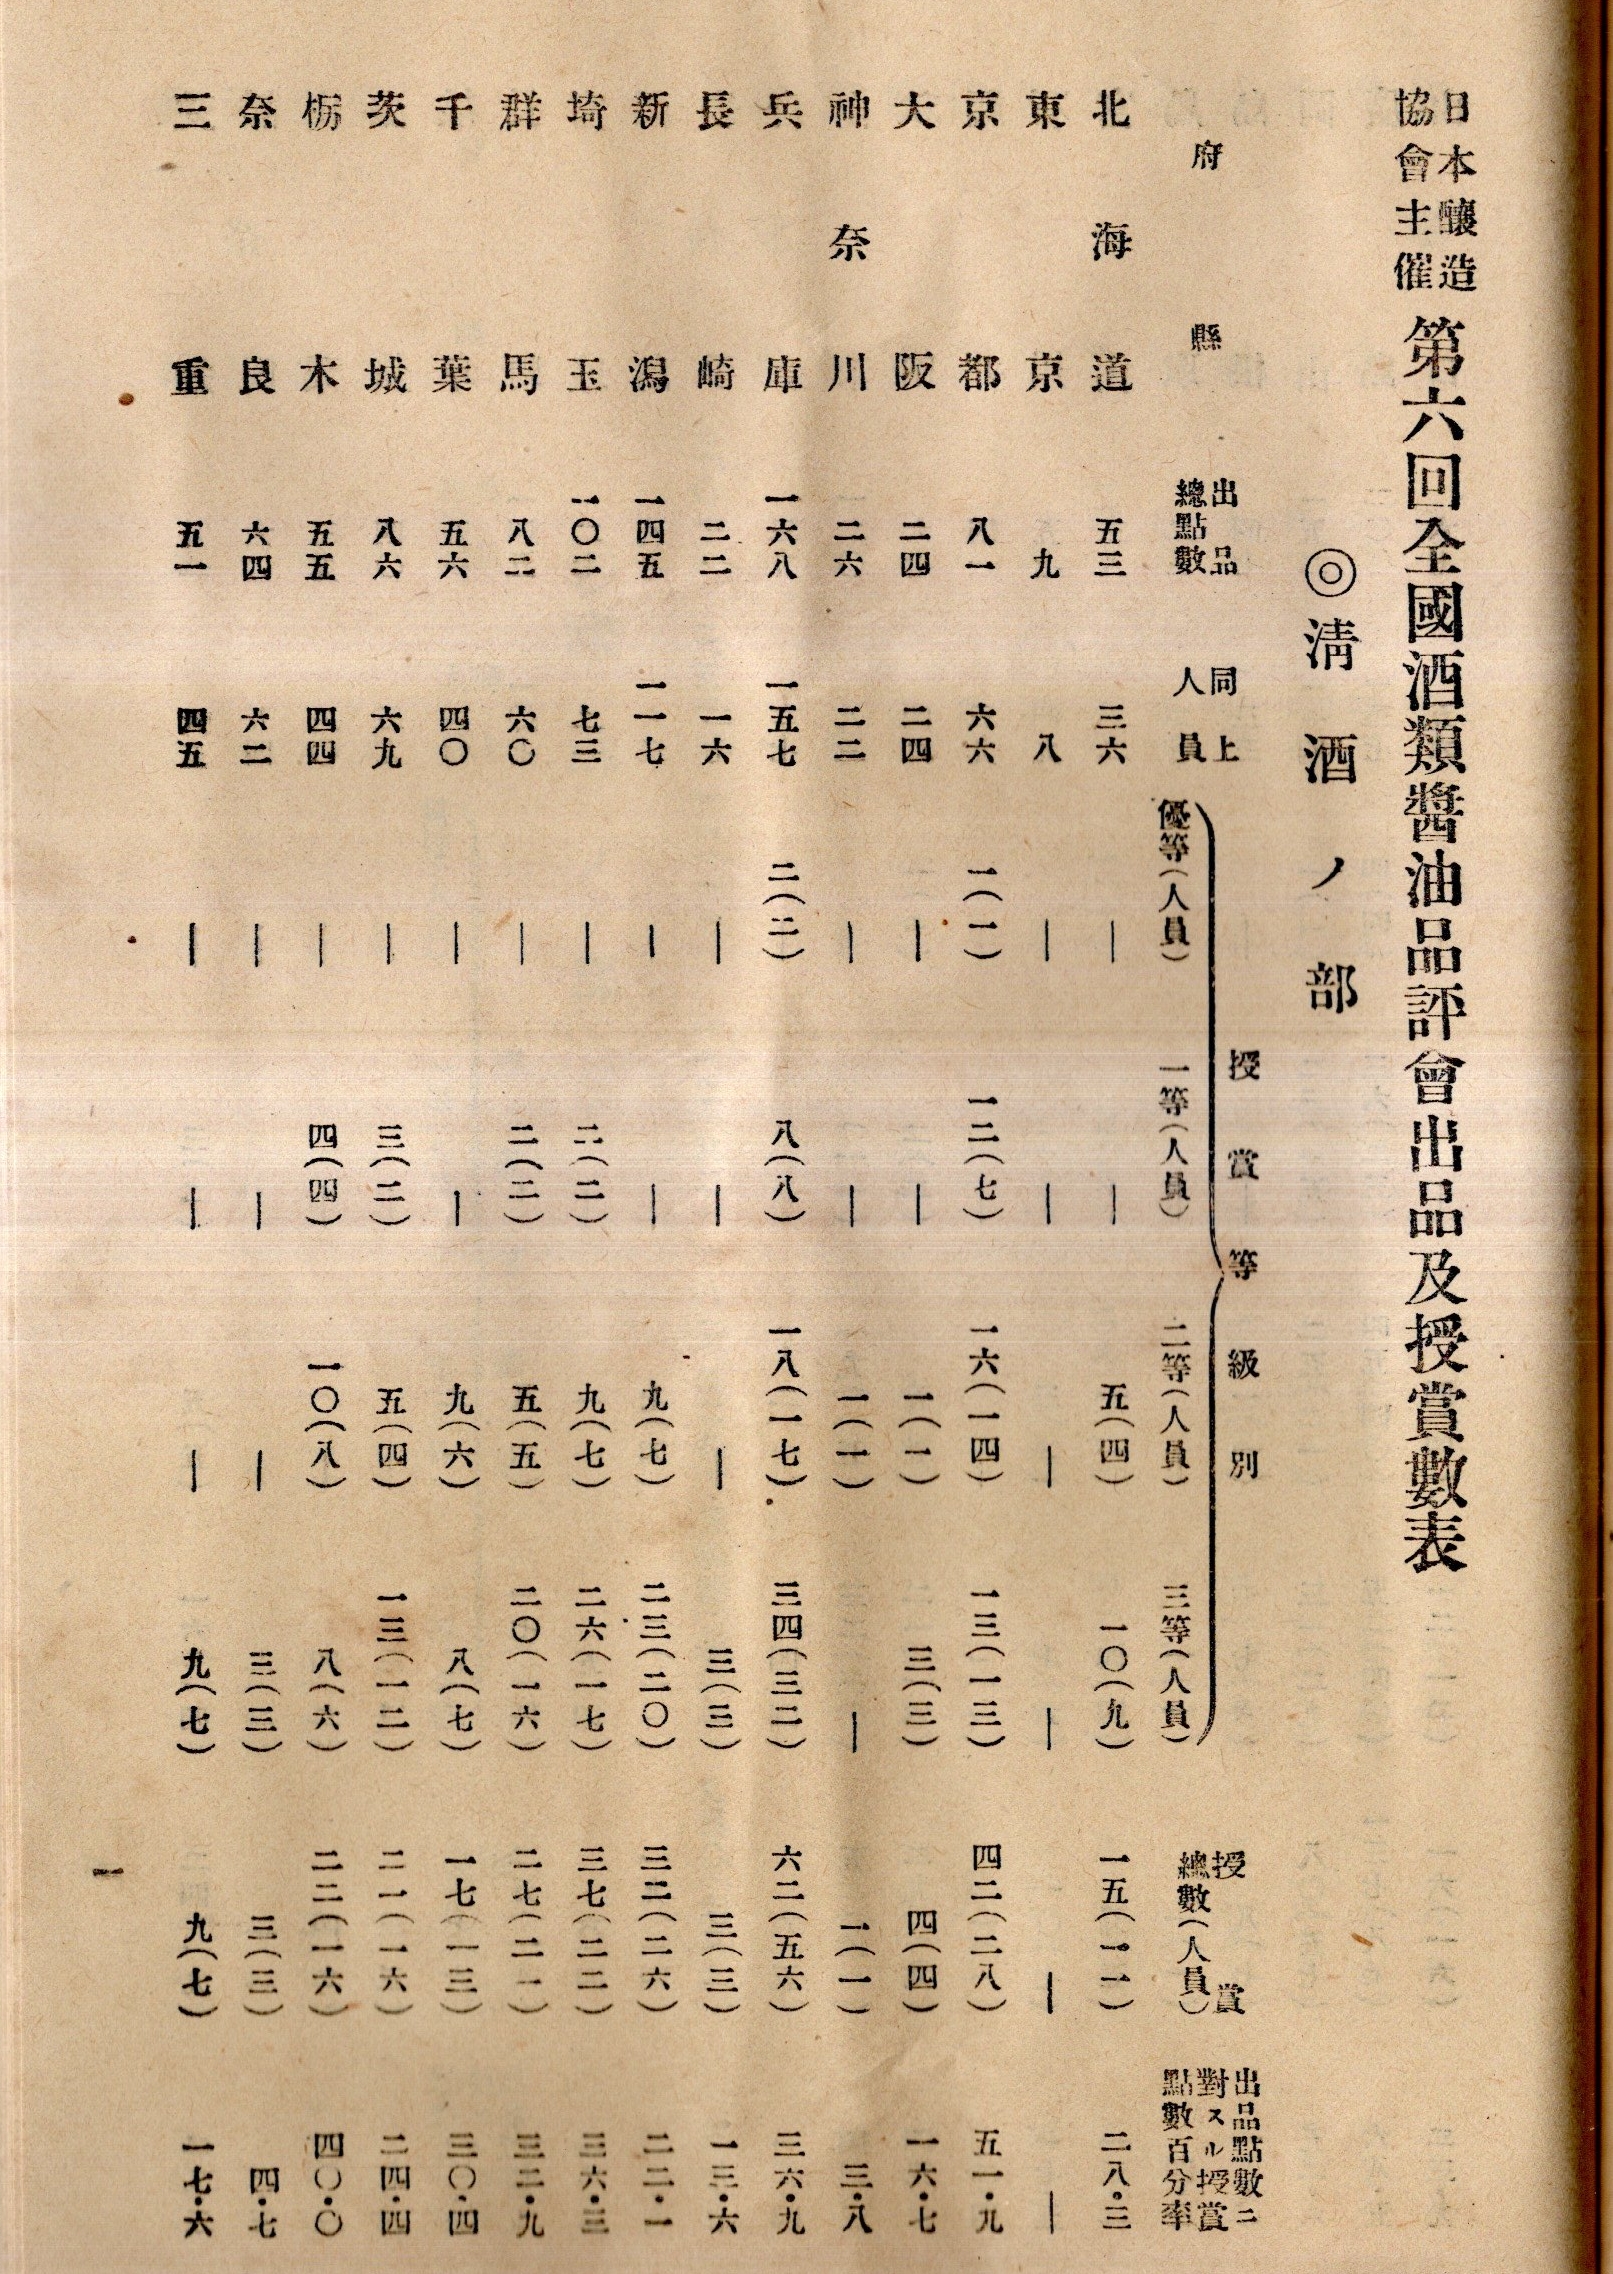 日本釀造
協會主催
第六回全國酒類醬油品評會出品及授賞數表
◎淸酒ノ部
府縣
出品
總點數
同上
人員
授賞等級別
優等(人員)
一等(人員)
二等(人員)
三等(人員)
授賞
總數(人員)
出品點數ニ
對スル授賞
點數百分率
北海道 五三 三六 ― ― 五(四) 一〇(九) 一五(一一) 二八・三
東京 九 八 ― ― ― ― ― ―
京都 八一 六六 一(一) 一二(七) 一六(一四) 一三(一三) 四二(二八) 五一・九
大阪 二四 二四 ― ― 一(一) 三(三) 四(四) 一六・七
神奈川 二六 二二 ― ― 一(一) ― 一(一) 三・八
兵庫 一六八 一五七 二(二) 八(八) 一八(一七) 三四(三二) 六二(五六) 三六・九
長崎 二二 一六 ― ― ― 三(三) 三(三) 一三・六
新潟 一四五 一一七 ― ― 九(七) 二三(二〇) 三二(二六) 二二・一
埼玉 一〇二 七三 ― 二(二) 九(七) 二六(一七) 三七(二二) 三六・三
群馬 八二 六〇 ― 二(二) 五(五) 二〇(一六) 二七(二一) 三二・九
千葉 五六 四〇 ― ― 九(六) 八(七) 一七(一三) 三〇・四
茨城 八六 六九 ― 三(二) 五(四) 一三(一二) 二一(一六) 二四・四
栃木 五五 四四 ― 四(四) 一〇(八) 八(六) 二二(一六) 四〇・〇
奈良 六四 六二 ― ― ― 三(三) 三(三) 四・七
三重 五一 四五 ― ― ― 九(七) 九(七) 一七・六
一